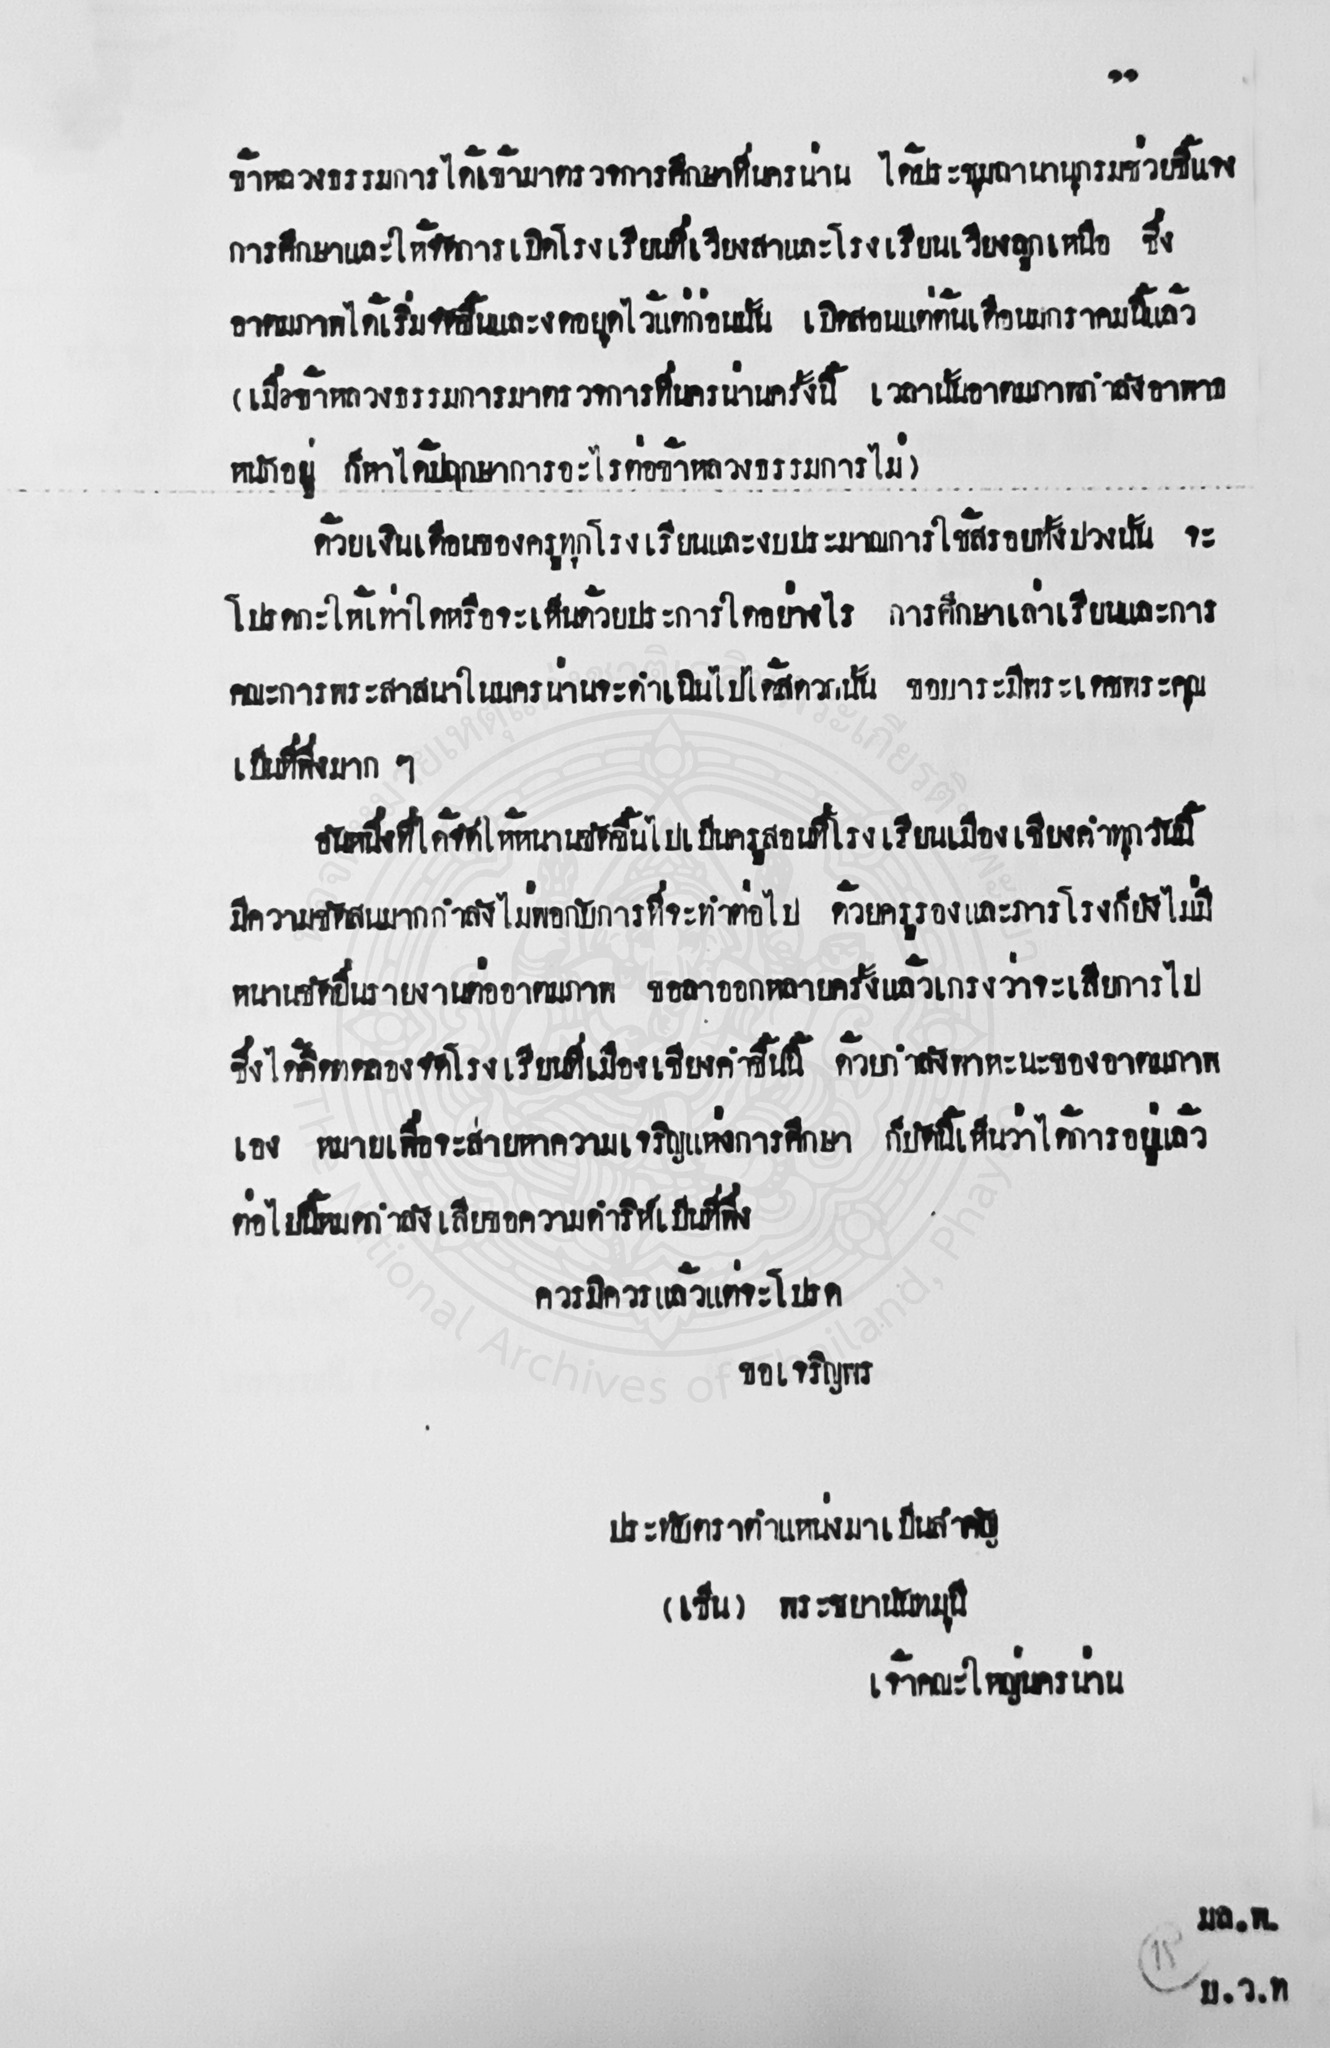 ๑๑
ข้าหลวงธรรมการได้เข้ามาตรวจการศึกษาที่นครน่าน ได้ประชุมถานานุกรมช่วยชี้แจง
การศึกษาและให้จัดการเปิดโรงเรียนที่เวียงสาและโรงเรียนเวียงลูกเหนือ ซึ่ง
อาตมภาพได้เริ่มจัดขึ้นและงดอยุดไว้แต่ก่อนนั้น เปิดสอนแต่ต้นเดือนมกราคมนี้แล้ว
(เมื่อข้าหลวงธรรมการมาตรวจการที่นครน่านครั้งนี้ เวลานั้นอาตมภาพกำลังอาพาธ
หนักอยู่ ก็หาได้ปฤกษาการอะไรต่อข้าหลวงธรรมการไม่)
ด้วยเงินเดือนของครูทุกโรงเรียนและงบประมาณการใช้สรอยทั้งปวงนั้น จะ
โปรดกะให้เท่าใดหรือจะเห็นด้วยประการใดอย่างไร การศึกษาเล่าเรียนและการ
คณะการพระสาสนาในนครน่านจะดำเนินไปได้สดวกนั้น ขอบาระมีพระเดชพระคุณ
เป็นที่พึ่งมาก ๆ
อันหนึ่งที่ได้จัดให้หนานขัดขึ้นไปเป็นครูสอนที่โรงเรียนเมืองเชียงคำทุกวันนี้
มีความขัดสนมากกำลังไม่พอกับการที่จะทำต่อไป ด้วยครูรองและภารโรงก็ยังไม่มี
หนานขัดยื่นรายงานต่ออาตมภาพ ขอลาออกหลายครั้งแล้วเกรงว่าจะเสียการไป
ซึ่งได้คิดทดลองจัดโรงเรียนที่เมืองเชียงคำขึ้นนี้ ด้วยกำลังพาหะนะของอาตมภาพ
เอง หมายเพื่อจะส่ายหาความเจริญแห่งการศึกษา ก็บัดนี้เห็นว่าได้การอยู่แล้ว
ต่อไปนี้หมดกำลังเสียขอความดำริห์เป็นที่พึ่ง
ควรมิควรแล้วแต่จะโปรด
ขอเจริญพร
ประทับตราตำแหน่งมาเป็นสำคัญ
(เซ็น) พระชยานันทมุนี
เจ้าคณะใหญ่นครน่าน
มล.พ.
15
บ.ว.ท
The National Archives of Thailand, Phayao